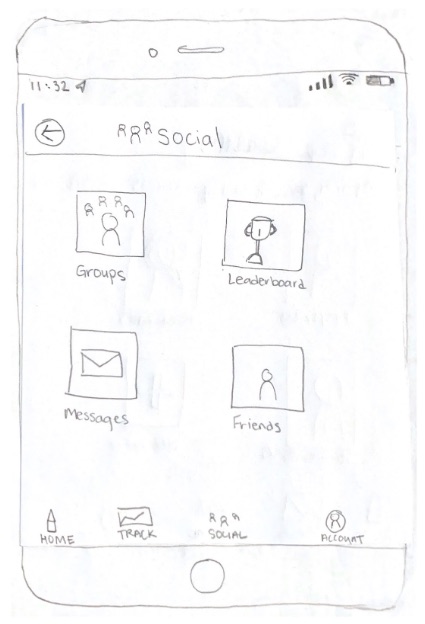 11:32
Social
1
Groups
Leaderboard
Messages
Friends
HOME
TRACK
SOCIAL
ACCOUNT